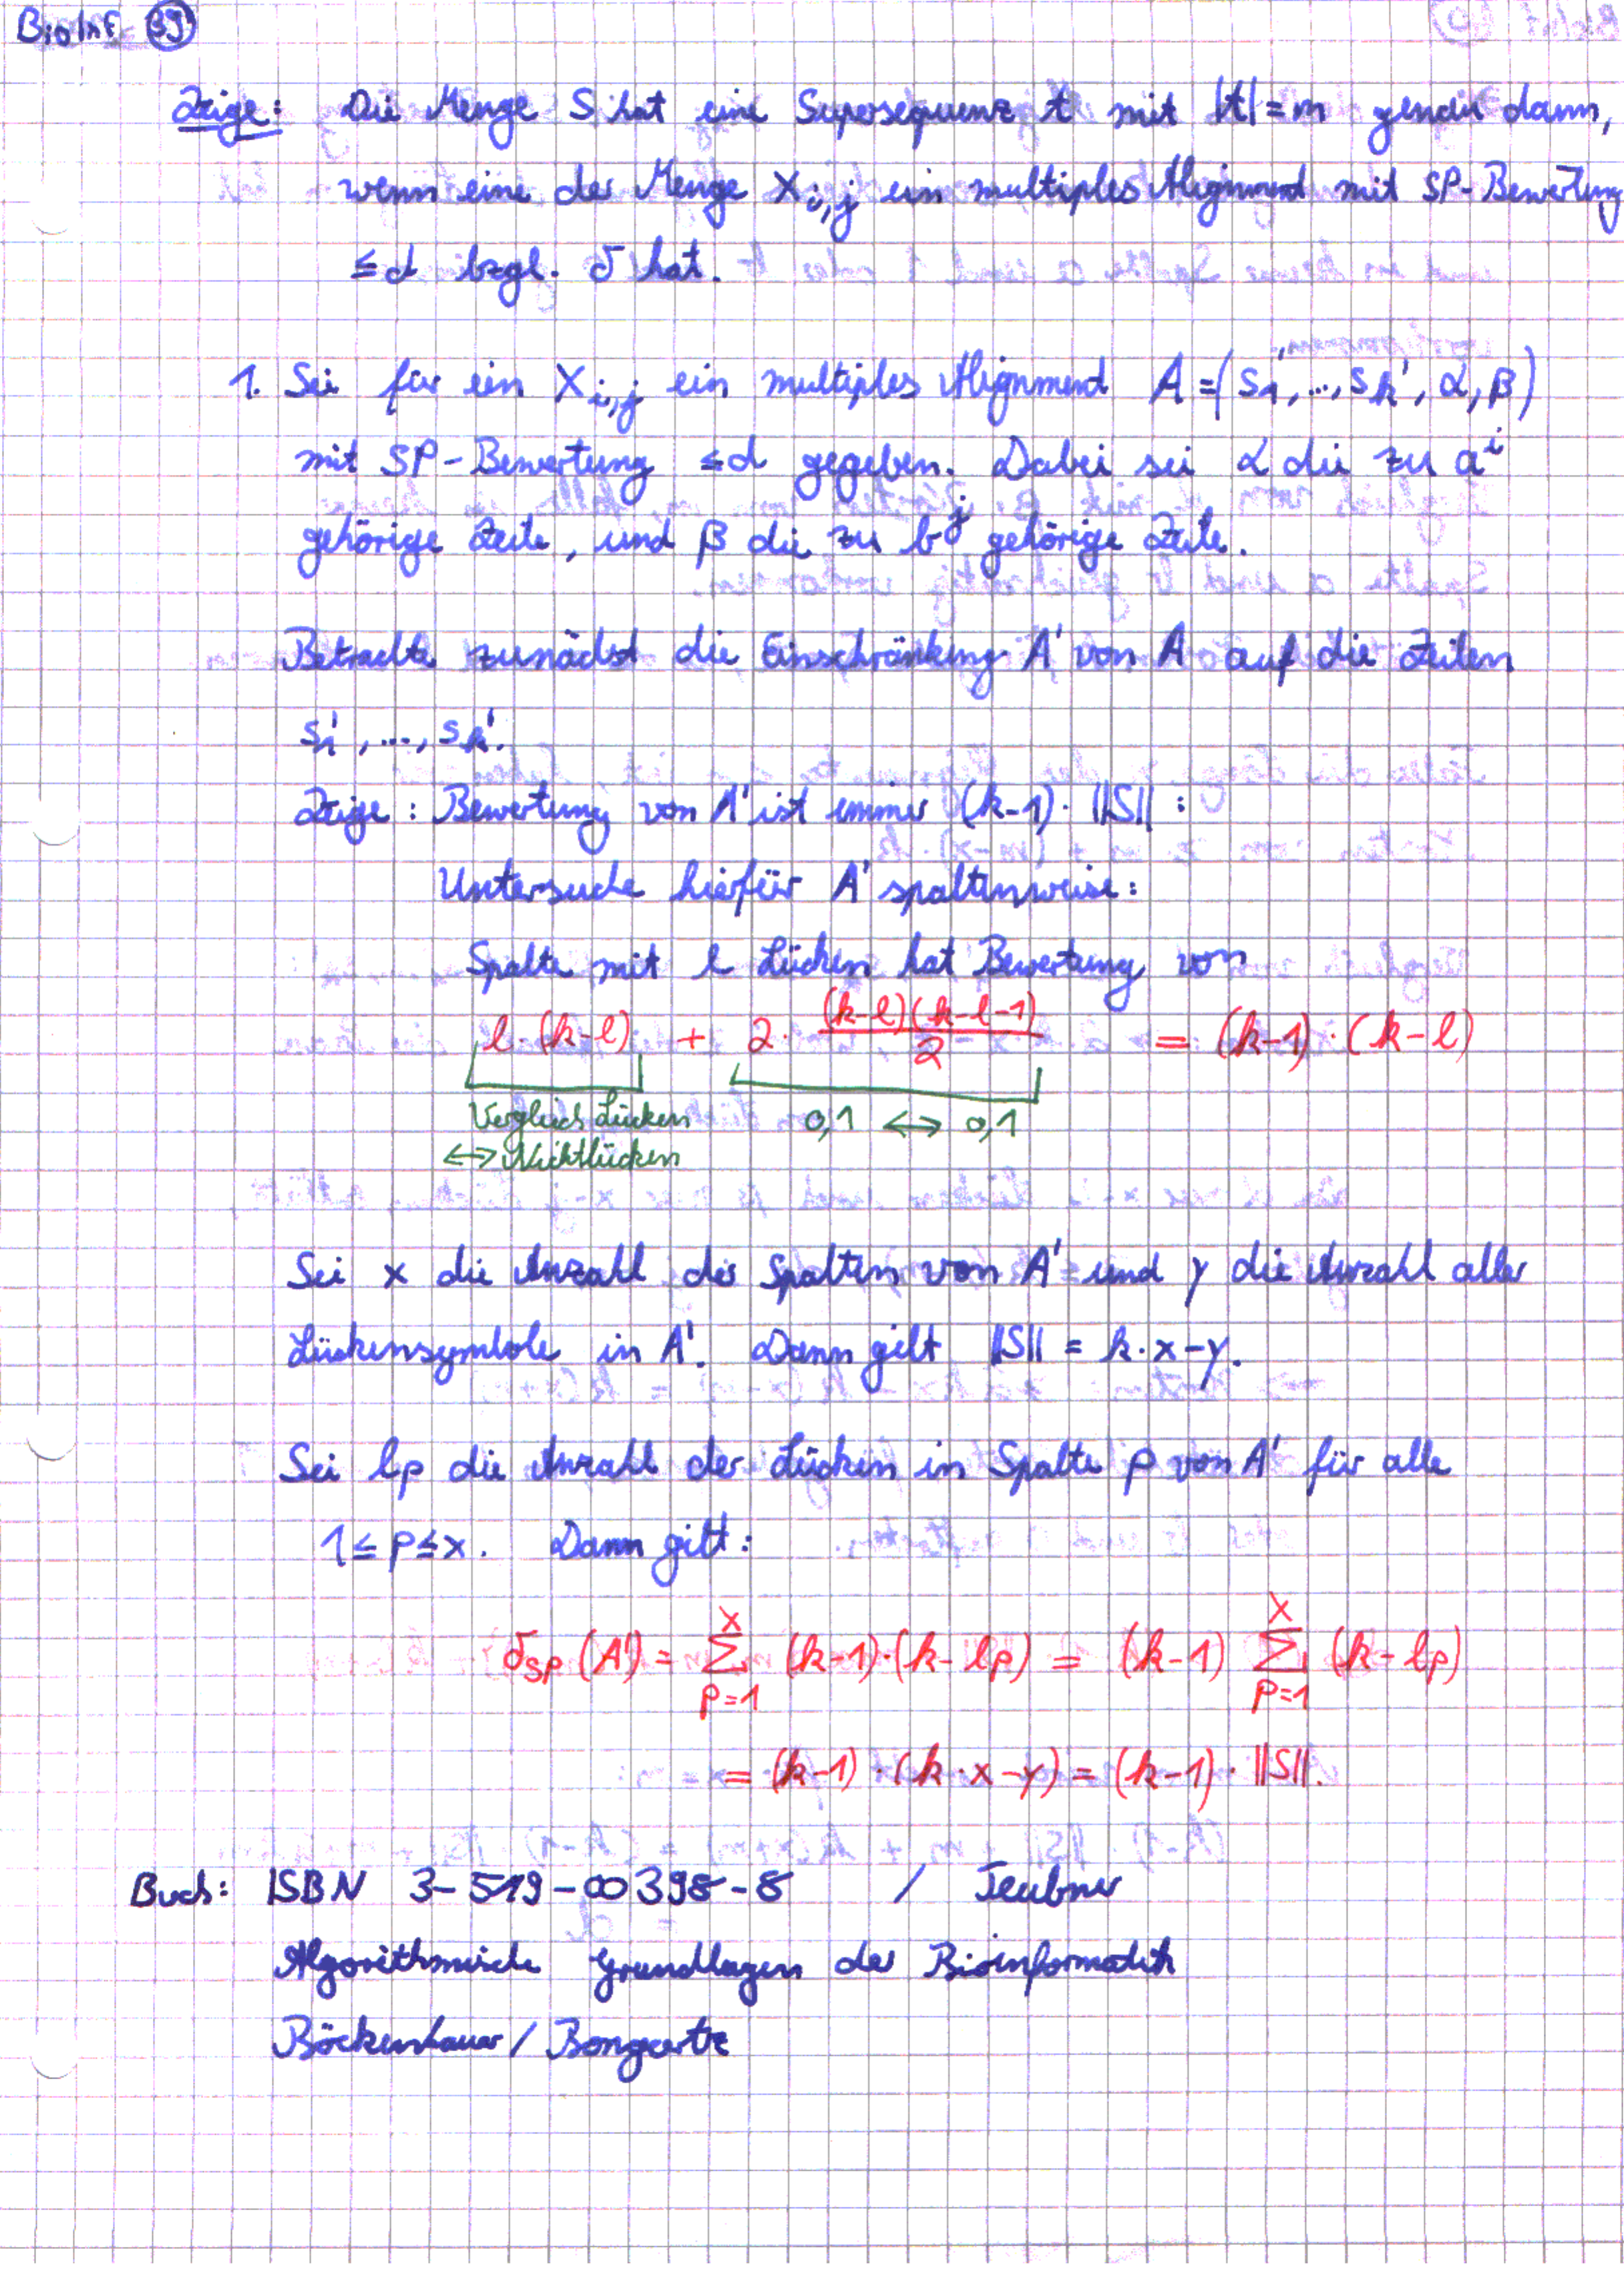 BioInf 39
Zeige: Die Menge S hat eine Supersequenz t mit |t| = m genau dann,
wenn eine der Menge X_{i,j} ein multiples Alignment mit SP-Bewertung
≤ d bzgl. δ hat.
1. Sei für ein X_{i,j} ein multiples Alignment A = (s_1', ..., s_k', α, β)
mit SP-Bewertung ≤ d gegeben. Dabei sei α die zu a^i
gehörige Zeile, und β die zu b^j gehörige Zeile.
Betrachte zunächst die Einschränkung A' von A auf die Zeilen
s_1', ..., s_k'.
Zeige: Bewertung von A' ist immer (k-1) · ||S|| :
Untersuche hierfür A' spaltenweise:
Spalte mit l Lücken hat Bewertung von
l · (k-l) + 2 · (k-l)(k-l-1)/2 = (k-1) · (k-l)
Vergleich Lücken 0,1 ↔ 0,1
↔ Nichtlücken
Sei x die Anzahl der Spalten von A' und y die Anzahl aller
Lückensymbole in A'. Dann gilt ||S|| = k · x - y.
Sei l_p die Anzahl der Lücken in Spalte p von A' für alle
1 ≤ p ≤ x. Dann gilt:
δ_SP (A') = ∑_{p=1}^{x} (k-1) · (k - l_p) = (k-1) ∑_{p=1}^{x} (k - l_p)
= (k-1) · (k · x - y) = (k-1) · ||S||.
Buch: ISBN 3-519-00398-8 / Teubner
Algorithmische Grundlagen der Bioinformatik
Böckenhauer / Bongartz